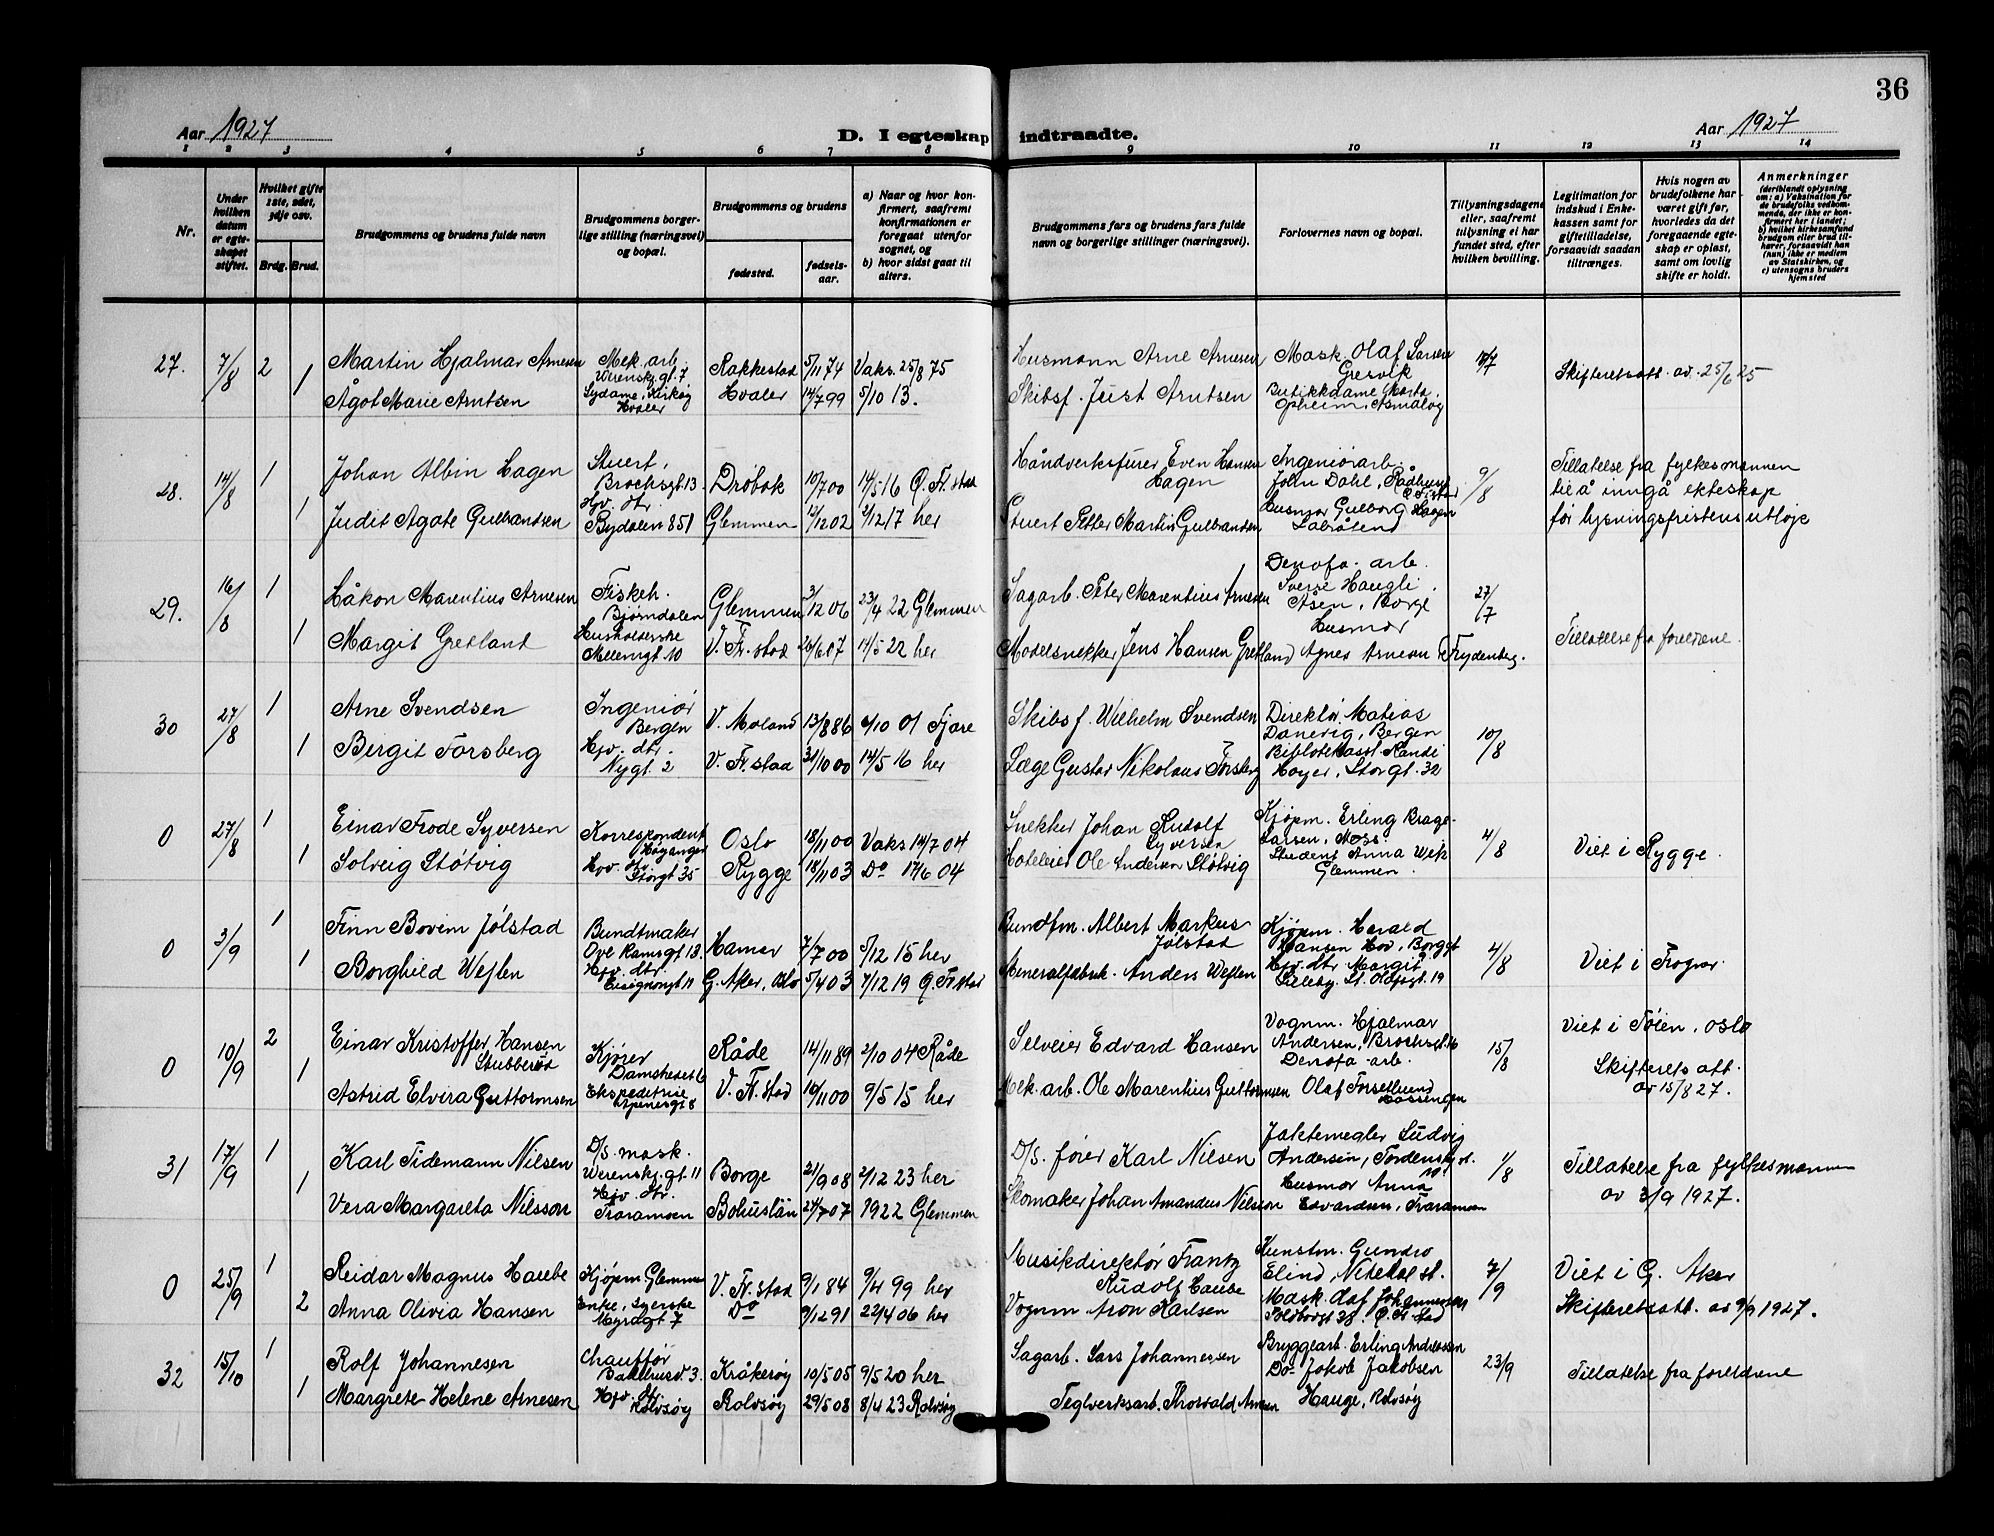 36
Aar 1927
D. I egteskap indtraadte.
Aar 1927
1 2 3 4 5 6 7 8 9 10 11 12 13 14
Nr.
Under hvilken datum er egteskapet stiftet.
Hvilket gifte 1ste, 2det, 3dje osv.
Brdg. Brud.
Brudgommens og brudens fulde navn
Brudgommens borgerlige stilling (næringsvei) og bopæl.
Brudgommens og brudens
fødested.
fødselsaar.
a) Naar og hvor konfirmert, saafremt konfirmationen er foregaat utenfor sognet, og
b) hvor sidst gaat til alters.
Brudgommens fars og brudens fars fulde navn og borgerlige stillinger (næringsvei).
Forlovernes navn og bopæl.
Tillysningsdagene eller, saafremt tillysning ei har fundet sted, efter hvilken bevilling.
Legitimation for indskud i Enkekassen samt for giftetilladelse, forsaavidt saadan tiltrænges.
Hvis nogen av brudefolkene har været gift før, hvorledes da det foregaaende egteskap er opløst, samt om lovlig skifte er holdt.
Anmerkninger
(deriblandt oplysning om: a) Vaksination for de brudefolks vedkommende, der ikke er konfirmert her i landet; b) hvilket kirkesamfund brudgom eller brud tilhører, forsaavidt han (hun) ikke er medlem av Statskirken, og c) utensogns bruders hjemsted
27. 7/8 2 Martin Hjalmar Arnesen Mek. arb. Werenskj.gt. 7 Rakkestad 5/11 74 Vaks. 25/8 75 Husmann Arne Arnesen Mask. Olaf Larsen Gresvik Skifteretsatt. av 25/6 25
1 Ågot Marie Arntsen Sydame, Kirkøy Hvaler Hvaler 14/7 99 5/10 13. Skibsf. Just Arntsen Butikkdame Marta Opheim, Asmaløy
28. 14/8 1 Johan Albin Hagen Stuert, Brochsgt. 13 Drøbak 10/7 00 14/5 16 Ø. Fr.stad Håndverksfører Even Hansen Hagen Ingeniørarb. John Dahl, Rådhusgt Ø. Fr.stad 9/8 Tillatelse fra fylkesmannen til å inngå ekteskap før lysningsfristens utløp
1 Judit Agate Gulbrandsen Hjv. dtr. Bydalen 851 Glemmen 12/12 02 2/12 17 her Stuert Petter Martin Gulbrandsen Husmor Gulborg Hagen Labråten
29. 16/8 1 Håkon Marentius Arnesen Fiskeh. Bjørndalen Glemmen 3/12 06 23/4 22 Glemmen Sagarb. Peter Marentius Arnesen Denofa-arb. Sverre Haugli Åsen, Borge 27/7
1 Margit Gretland Husholderske Mellemgt 10 V. Fr.stad 26/6 07 14/5 22 her Modelsnekker Jens Hansen Gretland Husmor Agnes Arnesen Frydenberg. Tillatelse fra foreldrene.
30 27/8 1 Arne Svendsen Ingeniør Bergen V. Moland 13/8 86 6/10 01 Fjære Skibsf. Wilhelm Svendsen Direktør Matias Danevig, Bergen 10/8
1 Bergit Forsberg Hjv. dtr. Nygt. 2 V. Fr.stad 31/10 00 14/5 16 her Læge Gustav Nikolaus Forsberg Bibliotekasst. Randi Høyer, Storgt. 32
0 27/8 1 Einar Frode Syversen Korrespondent Høyanger Oslo 18/11 00 Vaks 14/7 04 Snekker Johan Rudolf Syversen Kjøpm. Erling Brage-Larsen, Moss. 4/8 Viet i Rygge.
1 Solveig Støtvig Hjv. dtr. Storgt 35 Rygge 18/11 03 Do 17/6 04 Hoteleier Ole Andersen Støtvig Student Anna Wik Glemmen
0 3/9 1 Finn Bovim Jølstad Bundtmaker Ove Ramsgt 13. Hamar 7/7 00 5/12 15 her Bundtm. Albert Markus Jølstad Kjøpm. Harald Hansen Hov, Borggt 4/8 Viet i Frogner.
1 Borghild Wejlen Hjv. dtr. G. Aker, Oslo 5/4 03 7/12 19 Ø. Fr.stad Mineralfabrik. Anders Wejlen Hjv. dtr Margit Lilleby, St. Olafsgt. 19
0 10/9 2 Einar Kristoffer Hansen Stubberød Kjører Damstredet 6 Råde 14/11 89 2/10 04 Råde Selveier Edvard Hansen Vognm. Hjalmar Andersen, Brochsgt. 16 15/8 Viet i Tøien, Oslo
1 Astrid Elvira Guttormsen Ekspeditrise V. Fr.stad 10/11 00 9/5 15 her Mek. arb. Ole Marentius Guttormsen Denofa-arb. Olaf Forsetlund Hassengen Skifterets att. av 15/8 27.
31 17/9 1 Karl Tidemann Nilsen D/S. mask. Werenskj. gt. 11 Borge 21/9 08 2/12 23 her D/S. fører Karl Nilsen Jaktemegler Ludvig Andersen, Tordenskj. st. 1/8 Tillatelse fra fylkesmannen av 3/9 1927.
1 Vera Margareta Nilsson Hjv. dtr. Traramoen Bohuslän 24/7 07 1922 Glemmen Skomaker Johan Amandus Nilsson Husmor Anna Edvardsen, Traramoen
0 25/9 1 Reidar Magnus Haube Kjøpm Glemmen V. Fr.stad 9/1 84 9/4 99 her Musikdirektør Frantz Rudolf Haube Kunstm. Gundro Elind, Nitedal st. 7/9 Viet i G. Aker
2 Anna Olivia Hansen Enke, Syerske Myragt 7 Do 9/12 91 22/4 06 her Vognm Aron Karlsen Mask. Olaf Johannessen Toldbodgt 38, Ø. Fr stad Skifteretsatt. av 9/9 1927.
32 15/10 1 Rolf Johannesen Chauffør Bakkehusv. 3. Kråkerøy 10/5 05 9/5 20 her Sagarb. Lars Johannessen Bryggearb. Erling Andreassen 23/9 Tillatelse fra foreldrene
1 Margrete Helene Arnesen Hjv. dtr. Rolvsøy Rolvsøy 29/5 08 8/4 23 Rolvsøy Teglverksarb. Thorvald Arnesen Do- Jakob Jakobsen Hauge, Rolvsøy